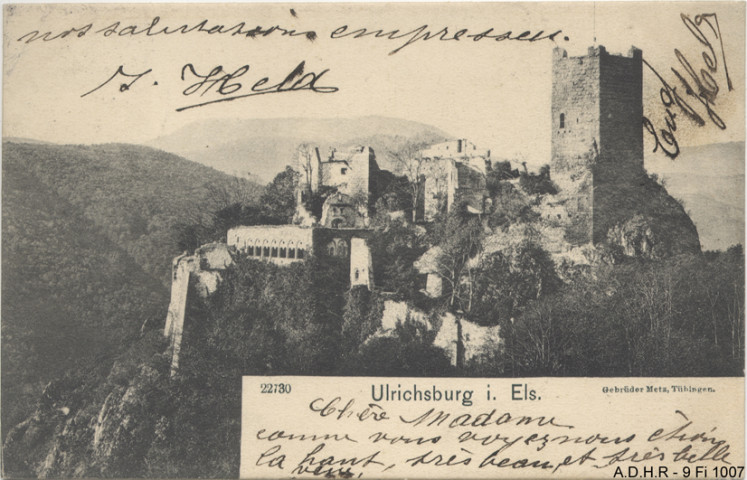 nos salutations empressées.
J. Held
Eug Held
22730 Ulrichsburg i. Els. Gebrüder Metz, Tübingen.
Chère Madame
comme vous voyez nous étions
la haut, très beau, et très belle
vue,
A.D.H.R - 9 Fi 1007